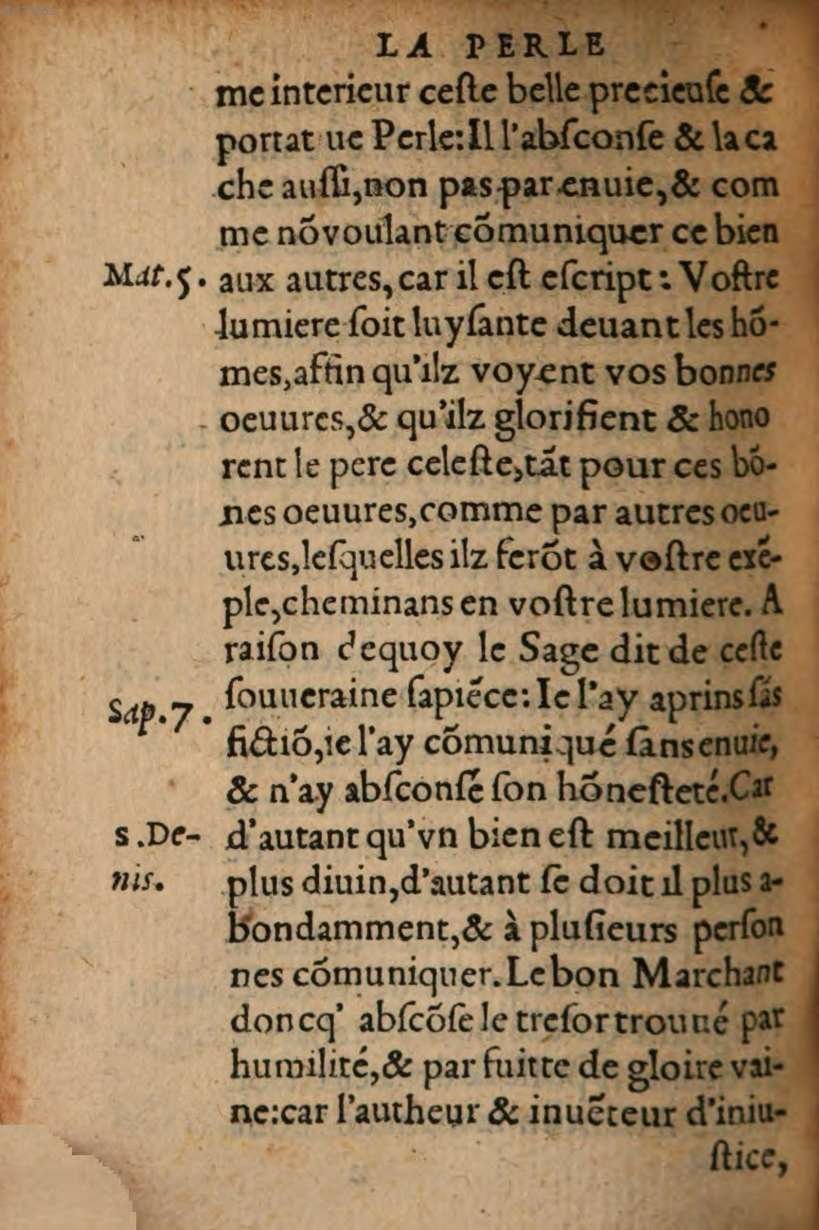 LA PERLE
me interieur ceſte belle precieuſe &
portat' ue Perle: Il l'abſconſe & la ca
che auſſi, non pas par enuie, & com
me nõ voulant cõmuniquer ce bien
Mat.5. aux autres, car il eſt eſcript: Voſtre
lumiere ſoit luyſante deuant les hõ-
mes, affin qu'ilz voyent vos bonnes
oeuures, & qu'ilz glorifient & hono
rent le pere celeſte, tãt pour ces bõ-
nes oeuures, comme par autres oeu-
ures, leſquelles ilz ferõt à voſtre exẽ-
ple, cheminans en voſtre lumiere. A
raiſon dequoy le Sage dit de ceſte
Sap.7. ſouueraine ſapiẽce: Ie l'ay aprins ſãs
fictiõ, ie l'ay cõmuniqué ſans enuie,
& n'ay abſconſé ſon hõneſteté. Car
S. De- d'autant qu'vn bien eſt meilleur, &
nis. plus diuin, d'autant ſe doit il plus a-
bondamment, & à pluſieurs perſon
nes cõmuniquer. Le bon Marchant
doncq' abſcõſe le treſor trouué par
humilité, & par fuitte de gloire vai-
ne: car l'autheur & inuẽteur d'iniu-
ſtice,